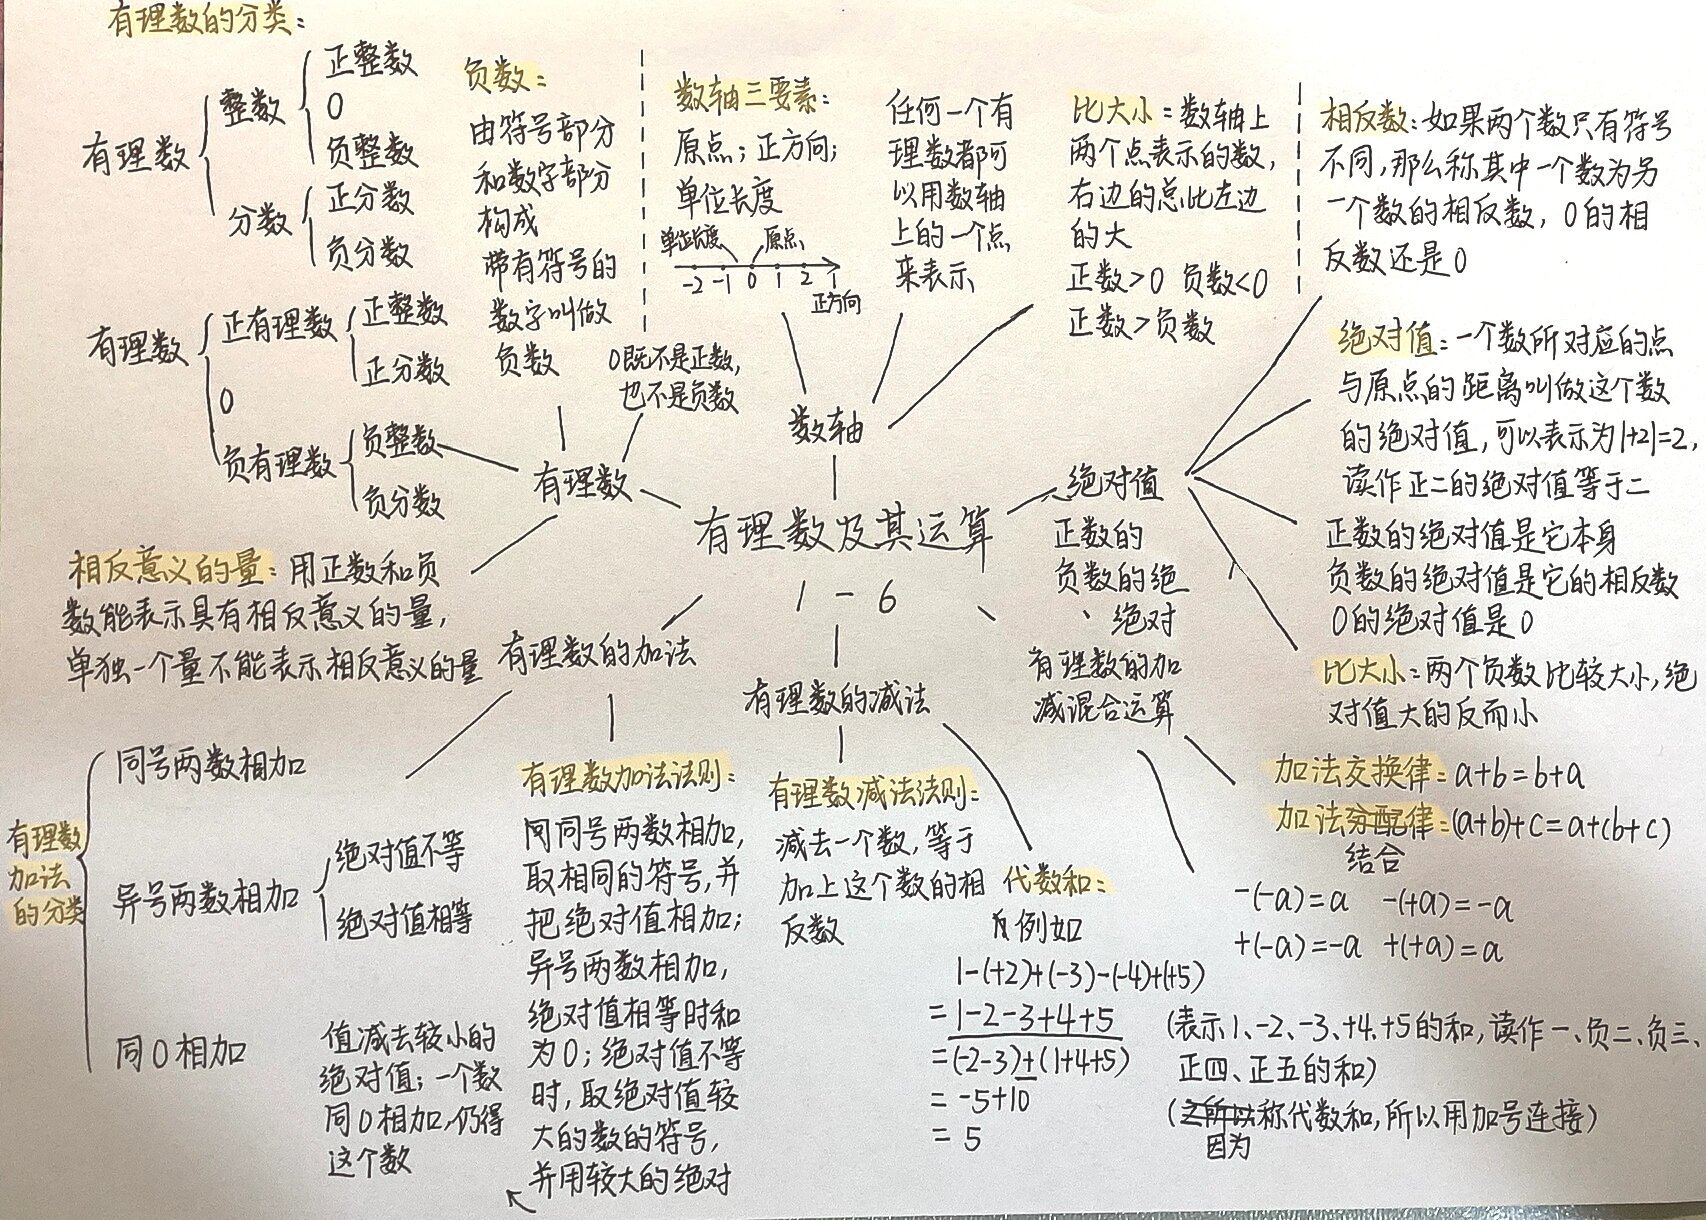 有理数的分类：
有理数
整数
正整数
0
负整数
分数
正分数
负分数
有理数
正有理数
正整数
正分数
0
负有理数
负整数
负分数
负数：
由符号部分
和数字部分
构成
带有符号的
数字叫做
负数
0既不是正数，
也不是负数
有理数
相反意义的量：用正数和负
数能表示具有相反意义的量，
单独一个量不能表示相反意义的量
数轴三要素：
原点；正方向；
单位长度
单位长度 原点
-2 -1 0 1 2
正方向
任何一个有
理数都可
以用数轴
上的一个点
来表示
比大小：数轴上
两个点表示的数，
右边的总比左边
的大
正数>0 负数<0
正数>负数
数轴
有理数及其运算
1-6
相反数：如果两个数只有符号
不同，那么称其中一个数为另
一个数的相反数，0的相
反数还是0
绝对值：一个数所对应的点
与原点的距离叫做这个数
的绝对值，可以表示为|+2|=2，
读作正二的绝对值等于二
正数的绝对值是它本身
负数的绝对值是它的相反数
0的绝对值是0
比大小：两个负数比较大小，绝
对值大的反而小
绝对值
正数的
负数的绝
、绝对
有理数的加法
有理数加法的分类
同号两数相加
异号两数相加
绝对值不等
绝对值相等
同0相加
有理数加法法则：
同号两数相加，
取相同的符号，并
把绝对值相加；
异号两数相加，
绝对值相等时和
为0；绝对值不等
时，取绝对值较
大的数的符号，
并用较大的绝对
值减去较小的
绝对值；一个数
同0相加，仍得
这个数
有理数的减法
有理数减法法则：
减去一个数，等于
加上这个数的相
反数
代数和：
例如
1-(+2)+(-3)-(-4)+(+5)
=1-2-3+4+5
=(-2-3)+(1+4+5)
=-5+10
=5
(表示1、-2、-3、+4、+5的和，读作一、负二、负三、
正四、正五的和)
(之所以称代数和，所以用加号连接)
因为
有理数的加
减混合运算
加法交换律：a+b=b+a
加法分配律：(a+b)+c=a+(b+c)
结合
-(-a)=a -(+a)=-a
+(-a)=-a +(+a)=a